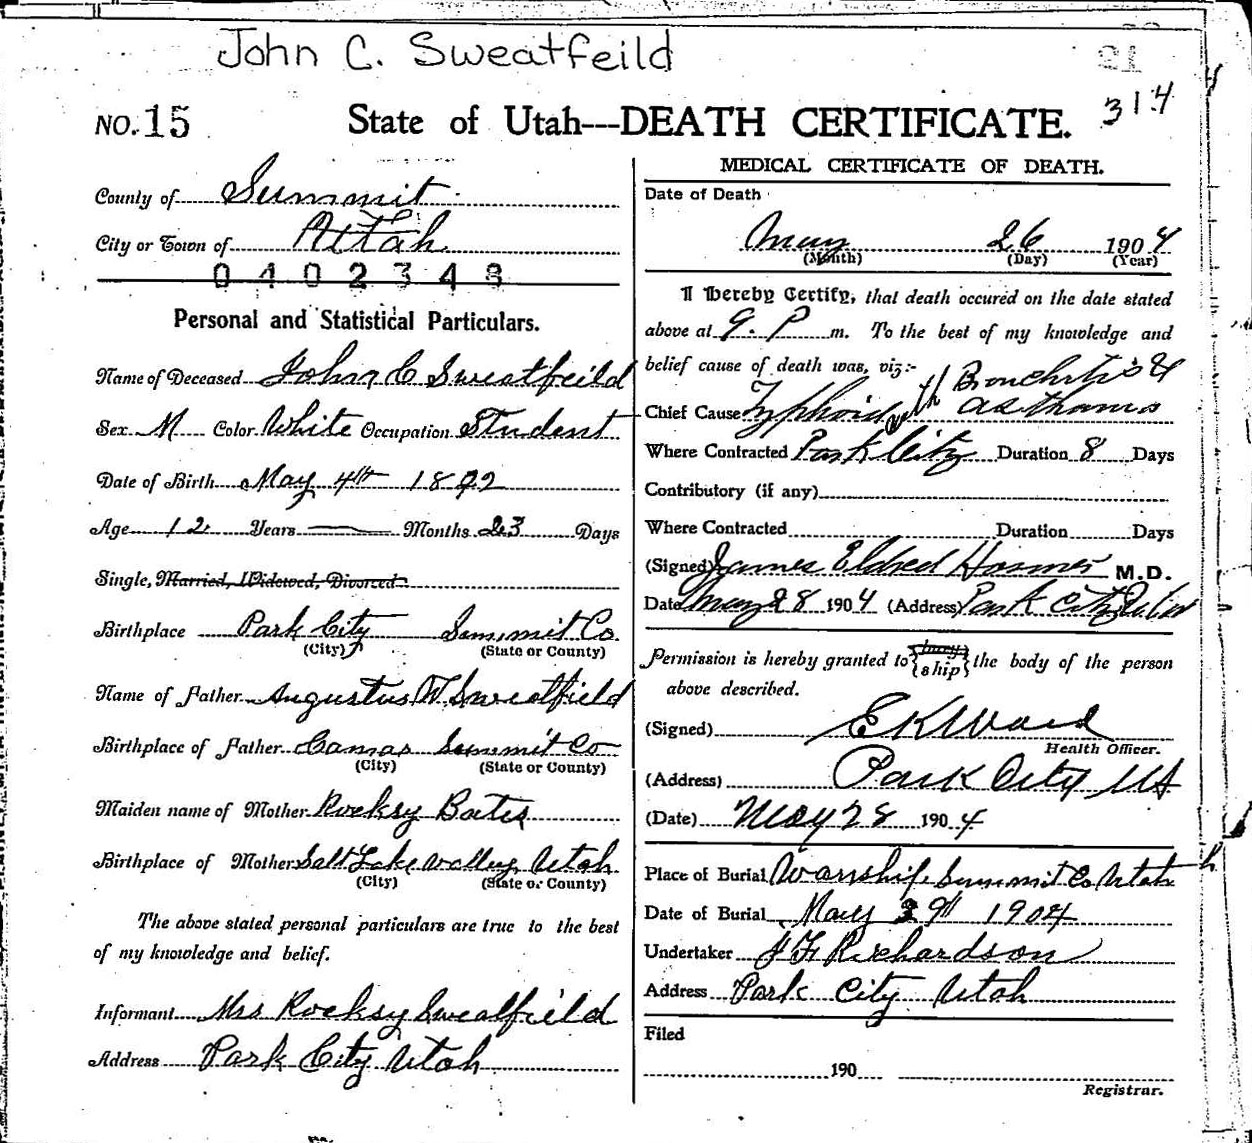 John C. Sweatfeild
21
314
NO. 15 State of Utah---DEATH CERTIFICATE.
County of Summit
City or Town of Utah
0402348
Personal and Statistical Particulars.
Name of Deceased John C Sweatfeild
Sex M Color White Occupation Student
Date of Birth May 4th 1892
Age 12 Years Months 23 Days
Single, Married, Widowed, Divorced
Birthplace Park City Summit Co
(City) (State or County)
Name of Father Augustus W Sweatfield
Birthplace of Father Camas Summit Co
(City) (State or County)
Maiden name of Mother Rocksy Bates
Birthplace of Mother Salt Lake valley Utah
(City) (State or County)
The above stated personal particulars are true to the best
of my knowledge and belief.
Informant Mrs Rocksy Sweatfield
Address Park City Utah
MEDICAL CERTIFICATE OF DEATH.
Date of Death
May 26 1904
(Month) (Day) (Year)
I Hereby Certify, that death occured on the date stated
above at 9. P m. To the best of my knowledge and
belief cause of death was, viz:-
Chief Cause Typhoid with Bronchitis &
asthama
Where Contracted Park City Duration 8 Days
Contributory (if any)
Where Contracted Duration Days
(Signed) James Eldred Hosmer M.D.
Date May 28 1904 (Address) Park City Utah
Permission is hereby granted to {bury
ship} the body of the person
above described.
(Signed) E K Ward
Health Officer.
(Address) Park City Ut
(Date) May 28 1904
Place of Burial Wanship Summit Co Utah
Date of Burial May 29th 1904
Undertaker J F Richardson
Address Park City Utah
Filed
190
Registrar.